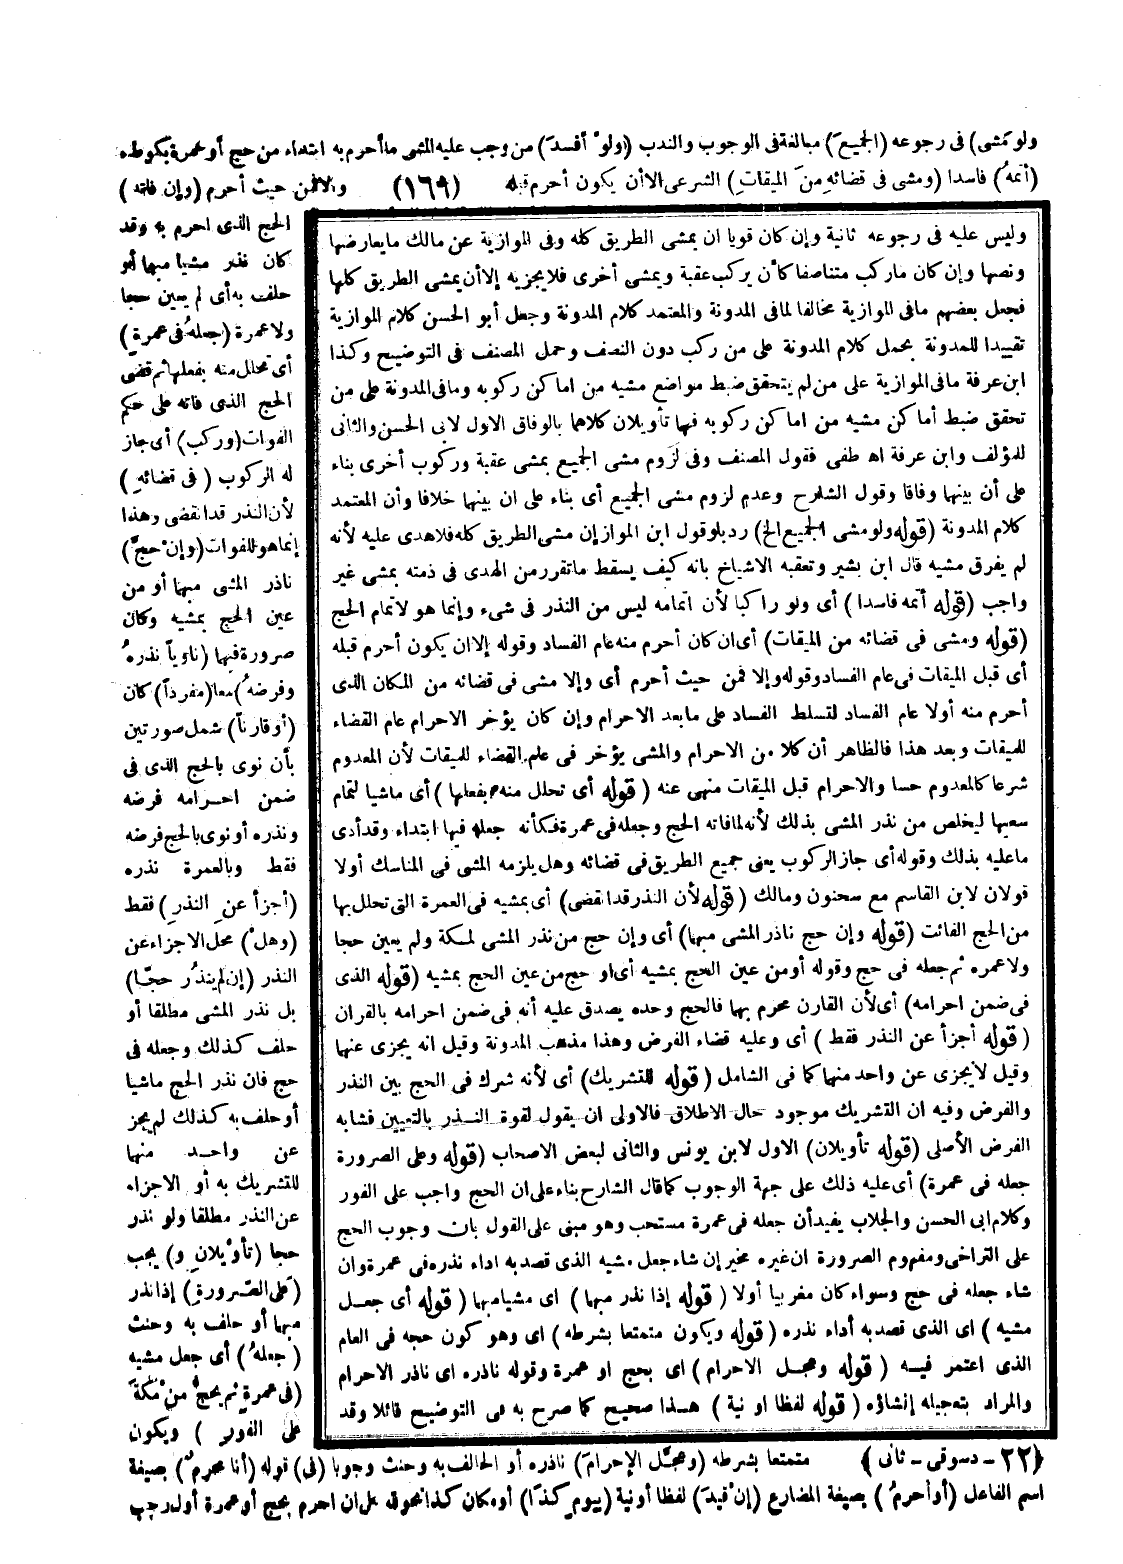 ولو مشى) فى رجوعه (الجميعَ) مبالغة فى الوجوب والندب (ولوْ أفسدَ) من وجب عليه المشى ما أحرم به ابتداء من حج أو عمرة بكوطء
(أتمهُ) فاسدا (ومشى فى قضائهِ منَ الميقاتِ) الشرعى الا أن يكون أحرم قبله (١٦٩) والا فمن حيث أحرم (وإن فاته)
الحج الذى احرم به وقد
كان نذر مشيا مبهما أو
حلف به أى لم يعين حجا
ولا عمرة (جعلهُ فى عمرةٍ)
أى تحلل منه بفعلها ثم قضى
الحج الذى فاته على حكم
الفوات (وركب) أى جاز
له الركوب (فى قضائهِ)
لأن النذر قد انقضى وهذا
إنما هو للفوات (وإنْ حجَّ)
ناذر المشى مبهما أو من
عين الحج بمشيه وكان
صرورة فيهما (ناوياً نذرهُ
وفرضهُ) معا (مفرداً) كان
(أو قارناً) شمل صورتين
بأن نوى بالحج الذى فى
ضمن احرامه فرضه
ونذره أو نوى بالحج فرضه
فقط وبالعمرة نذره
(أجزأ عنِ النذرِ) فقط
(وهلْ) محل الاجزاء عن
النذر (إن لم ينذرْ حجّا)
بل نذر المشى مطلقا أو
حلف كذلك وجعله فى
حج فان نذر الحج ماشيا
أو حلف به كذلك لم يجز
عن واحد منهما
للتشريك به أو الاجزاء
عن النذر مطلقا ولو نذر
حجا (تأويلانِ و) يجب
(على الصّرورةِ) إذا نذر
مبهما أو حلف به وحنث
(جعلهُ) أى جعل مشيه
(فى عمرةٍ ثم يحجُّ منْ مكةَ
على الفور) ويكون
وليس عليه فى رجوعه ثانية وإن كان قويا ان يمشى الطريق كله وفى الموازية عن مالك ما يعارضها
ونصها وإن كان ما ركب متناصفا كأن يركب عقبة ويمشى أخرى فلا يجزيه إلا أن يمشى الطريق كلها
فجعل بعضهم ما فى الموازية مخالفا لما فى المدونة والمعتمد كلام المدونة وجعل أبو الحسن كلام الموازية
تقييدا للمدونة بحمل كلام المدونة على من ركب دون النصف وحمل المصنف فى التوضيح وكذا
ابن عرفة ما فى الموازية على من لم يتحقق ضبط مواضع مشيه من اماكن ركوبه وما فى المدونة على من
تحقق ضبط أماكن مشيه من اماكن ركوبه فيها تأويلان كلاهما بالوفاق الاول لابى الحسن والثانى
للمؤلف وابن عرفة اه طفى فقول المصنف وفى لَزوم مشى الجميع بمشى عقبة وركوب أخرى بناء
على أن بينهما وفاقا وقول الشارح وعدم لزوم مشى الجميع أى بناء على ان بينهما خلافا وأن المعتمد
كلام المدونة (قوله ولو مشى الجميع الخ) رد بلو قول ابن المواز إن مشى الطريق كله فلا هدى عليه لأنه
لم يفرق مشيه قال ابن بشير وتعقبه الاشياخ بانه كيف يسقط ما تقرر من الهدى فى ذمته بمشى غير
واجب (قوله أتمه فاسدا) أى ولو راكبا لأن اتمامه ليس من النذر فى شىء وإنما هو لاتمام الحج
(قوله ومشى فى قضائه من الميقات) أى ان كان أحرم منه عام الفساد وقوله إلا ان يكون أحرم قبله
أى قبل الميقات فى عام الفساد وقوله وإلا فمن حيث أحرم أى وإلا مشى فى قضائه من المكان الذى
أحرم منه أولا عام الفساد لتسلط الفساد على ما بعد الاحرام وإن كان يؤخر الاحرام عام القضاء
للميقات وبعد هذا فالظاهر أن كلا من الاحرام والمشى يؤخر فى عام القضاء للميقات لأن المعدوم
شرعا كالمعدوم حسا والاحرام قبل الميقات منهى عنه (قوله أى تحلل منه بفعلها) أى ماشيا لتمام
سعيها ليخلص من نذر المشى بذلك لأنه لما فاته الحج وجعله فى عمرة فكأنه جعله فيها ابتداء وقد أدى
ما عليه بذلك وقوله أى جاز الركوب يعنى جميع الطريق فى قضائه وهل يلزمه المشى فى المناسك أولا
قولان لابن القاسم مع سحنون ومالك (قوله لأن النذر قد انقضى) أى بمشيه فى العمرة التى تحلل بها
من الحج الفائت (قوله وإن حج ناذر المشى مبهما) أى وإن حج من نذر المشى لمكة ولم يعين حجا
ولا عمره ثم جعله فى حج وقوله أو من عين الحج بمشيه أى او حج من عين الحج بمشيه (قوله الذى
فى ضمن احرامه) أى لأن القارن محرم بهما فالحج وحده يصدق عليه أنه فى ضمن احرامه بالقران
(قوله أجزأ عن النذر فقط) أى وعليه قضاء الفرض وهذا مذهب المدونة وقيل انه يجزى عنهما
وقيل لا يجزى عن واحد منهما كما فى الشامل (قوله للتشريك) أى لأنه شرك فى الحج بين النذر
والفرض وفيه ان التشريك موجود حال الاطلاق فالاولى ان يقول لقوة النذر بالتعيين فشابه
الفرض الأصلى (قوله تأويلان) الاول لابن يونس والثانى لبعض الاصحاب (قوله وعلى الصرورة
جعله فى عمرة) أى عليه ذلك على جهة الوجوب كما قال الشارح بناء على ان الحج واجب على الفور
وكلام ابى الحسن والجلاب يفيد أن جعله فى عمرة مستحب وهو مبنى على القول بان وجوب الحج
على التراخى ومفهوم الصرورة ان غيره مخير إن شاء جعل مشيه الذى قصد به اداء نذره فى عمرة وان
شاء جعله فى حج وسواء كان مغربيا أولا (قوله إذا نذر مبهما) اى مشيا مبهما (قوله أى جعل
مشيه) اى الذى قصد به أداء نذره (قوله ويكون متمتعا بشرطه) اى وهو كون حجه فى العام
الذى اعتمر فيه (قوله وعجل الاحرام) اى بحج او عمرة وقوله ناذره اى ناذر الاحرام
والمراد بتعجيله إنشاؤه (قوله لفظا او نية) هذا صحيح كما صرح به فى التوضيح قائلا وقد
متمتعا بشرطه (وعجّل الإحرامَ) ناذره أو الحالف به وحنث وجوبا (فى) قوله (أنا محرمٌ) بصيغة
(٢٢ - دسوقى - ثانى)
اسم الفاعل (أو أحرمُ) بصيغة المضارع (إن قيدَ) لفظا أو نية (بيومِ كذا) أو مكان كذا نحو قوله على ان احرم بحج أو عمرة أول رجب